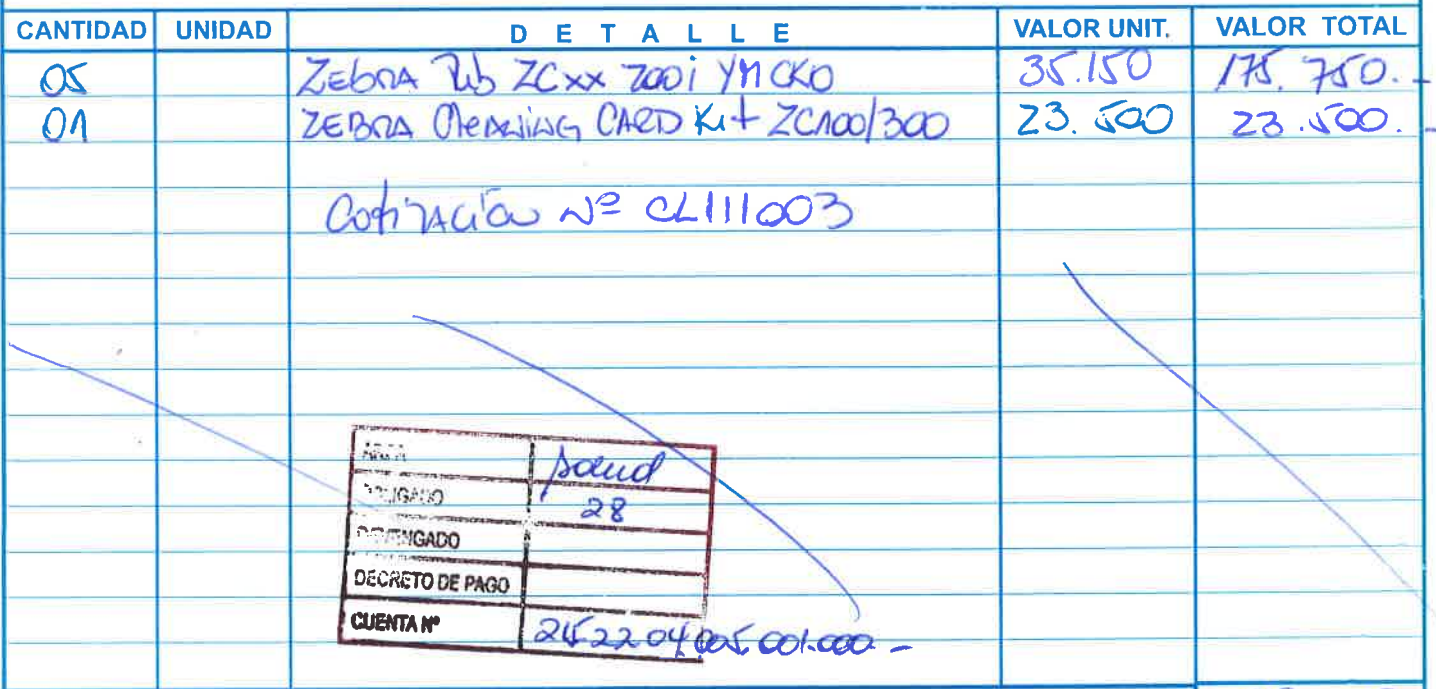 CANTIDAD UNIDAD DETALLE VALOR UNIT. VALOR TOTAL
05 ZEBRA Rib ZCxx 200i YMCKO 35.150 175.750.-
01 ZEBRA Cleaning CARD Kit ZC100/300 23.500 23.500.-
Cotización Nº CL111003
AREA Salud
OBLIGADO 28
DEVENGADO
DECRETO DE PAGO
CUENTA Nº 215 22 04 005.001.000.-